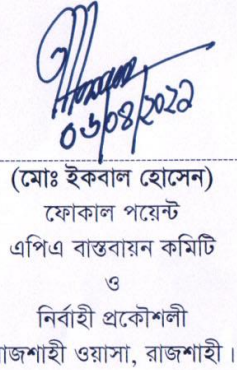 ০৬/০৪/২০২২
(মোঃ ইকবাল হোসেন)
ফোকাল পয়েন্ট
এপিএ বাস্তবায়ন কমিটি
ও
নির্বাহী প্রকৌশলী
রাজশাহী ওয়াসা, রাজশাহী।